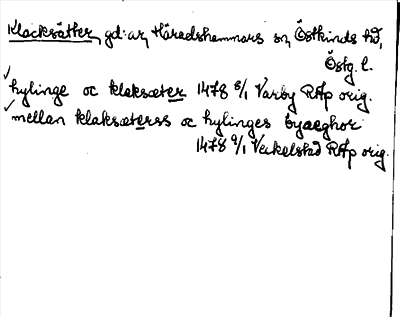 Klacksätter, gd:ar, Häradshammars sn, Östkinds hd,
Östg. l.
hylinge oc klaksæter 1478 8/1 Varby RAp orig.
mellan klaksæterss oc hylinges byaeghor
1478 9/1 Veckelstad RAp orig.